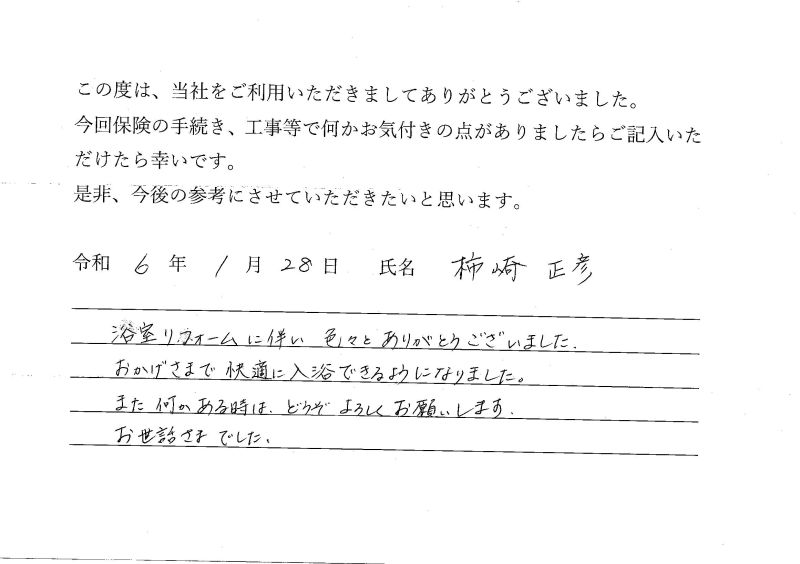 この度は、当社をご利用いただきましてありがとうございました。
今回保険の手続き、工事等で何かお気付きの点がありましたらご記入いた
だけたら幸いです。
是非、今後の参考にさせていただきたいと思います。
令和 6 年 1 月 28 日 氏名 柿崎 正彦
浴室リフォームに伴い 色々と ありがとうございました.
おかげさまで 快適に入浴できるようになりました。
また 何かある時は、どうぞ よろしく お願いします.
お世話さま でした.